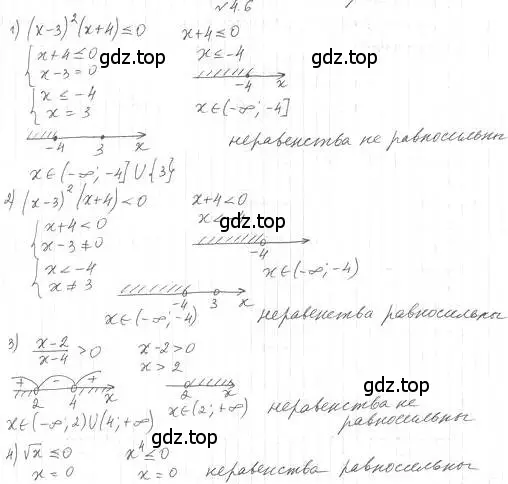 №4.6
1) (x-3)²(x+4)≤0 x+4≤0
{ x+4≤0 x≤-4
x-3=0
-4 x
{ x≤-4 x∈(-∞;-4]
x=3
-4 3 x неравенства не равносильны
x∈(-∞;-4]∪{3}
2) (x-3)²(x+4)<0 x+4<0
{ x+4<0 x<-4
x-3≠0
-4 x
{ x<-4 x∈(-∞;-4)
x≠3
-4 3 x
x∈(-∞;-4) неравенства равносильны
3) x-2/x-4 >0 x-2>0
x>2
+ - +
2 4 x 2 x
x∈(-∞;2)∪(4;+∞) x∈(2;+∞) неравенства не
равносильны
4) √x≤0 x⁴≤0
x=0 x=0 неравенства равносильны
gdz.top
gdz.top
gdz.top
gdz.top
gdz.top
gdz.top
gdz.top
gdz.top